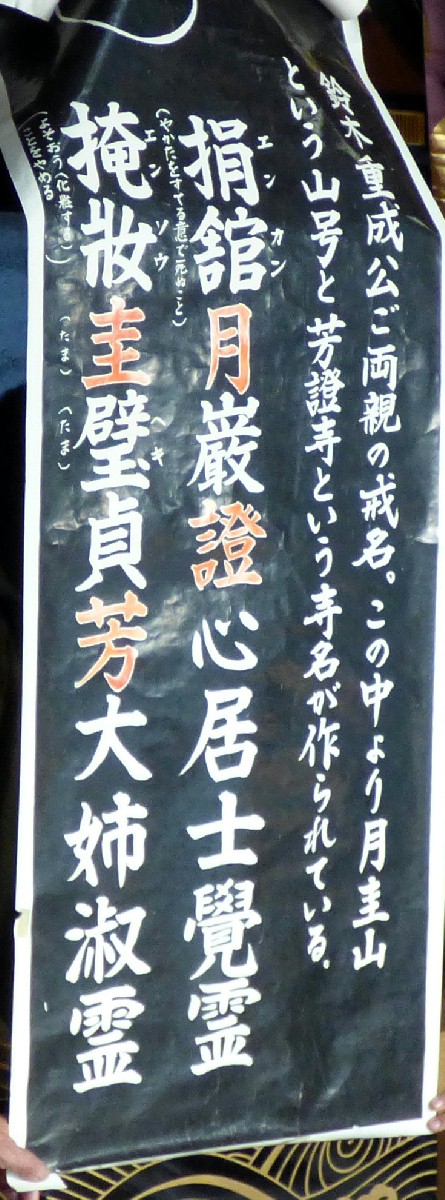 鈴木重成公ご両親の戒名。この中より月圭山
という山号と芳證寺という寺名が作られている.
捐舘月巌證心居士覺霊
エンカン
(やかたをすてる意で死ぬこと)
掩妝圭璧貞芳大姉淑霊
エンソウ
ヘキ
(よそおう(化粧する)
ことをやめる)
(たま)
(たま)